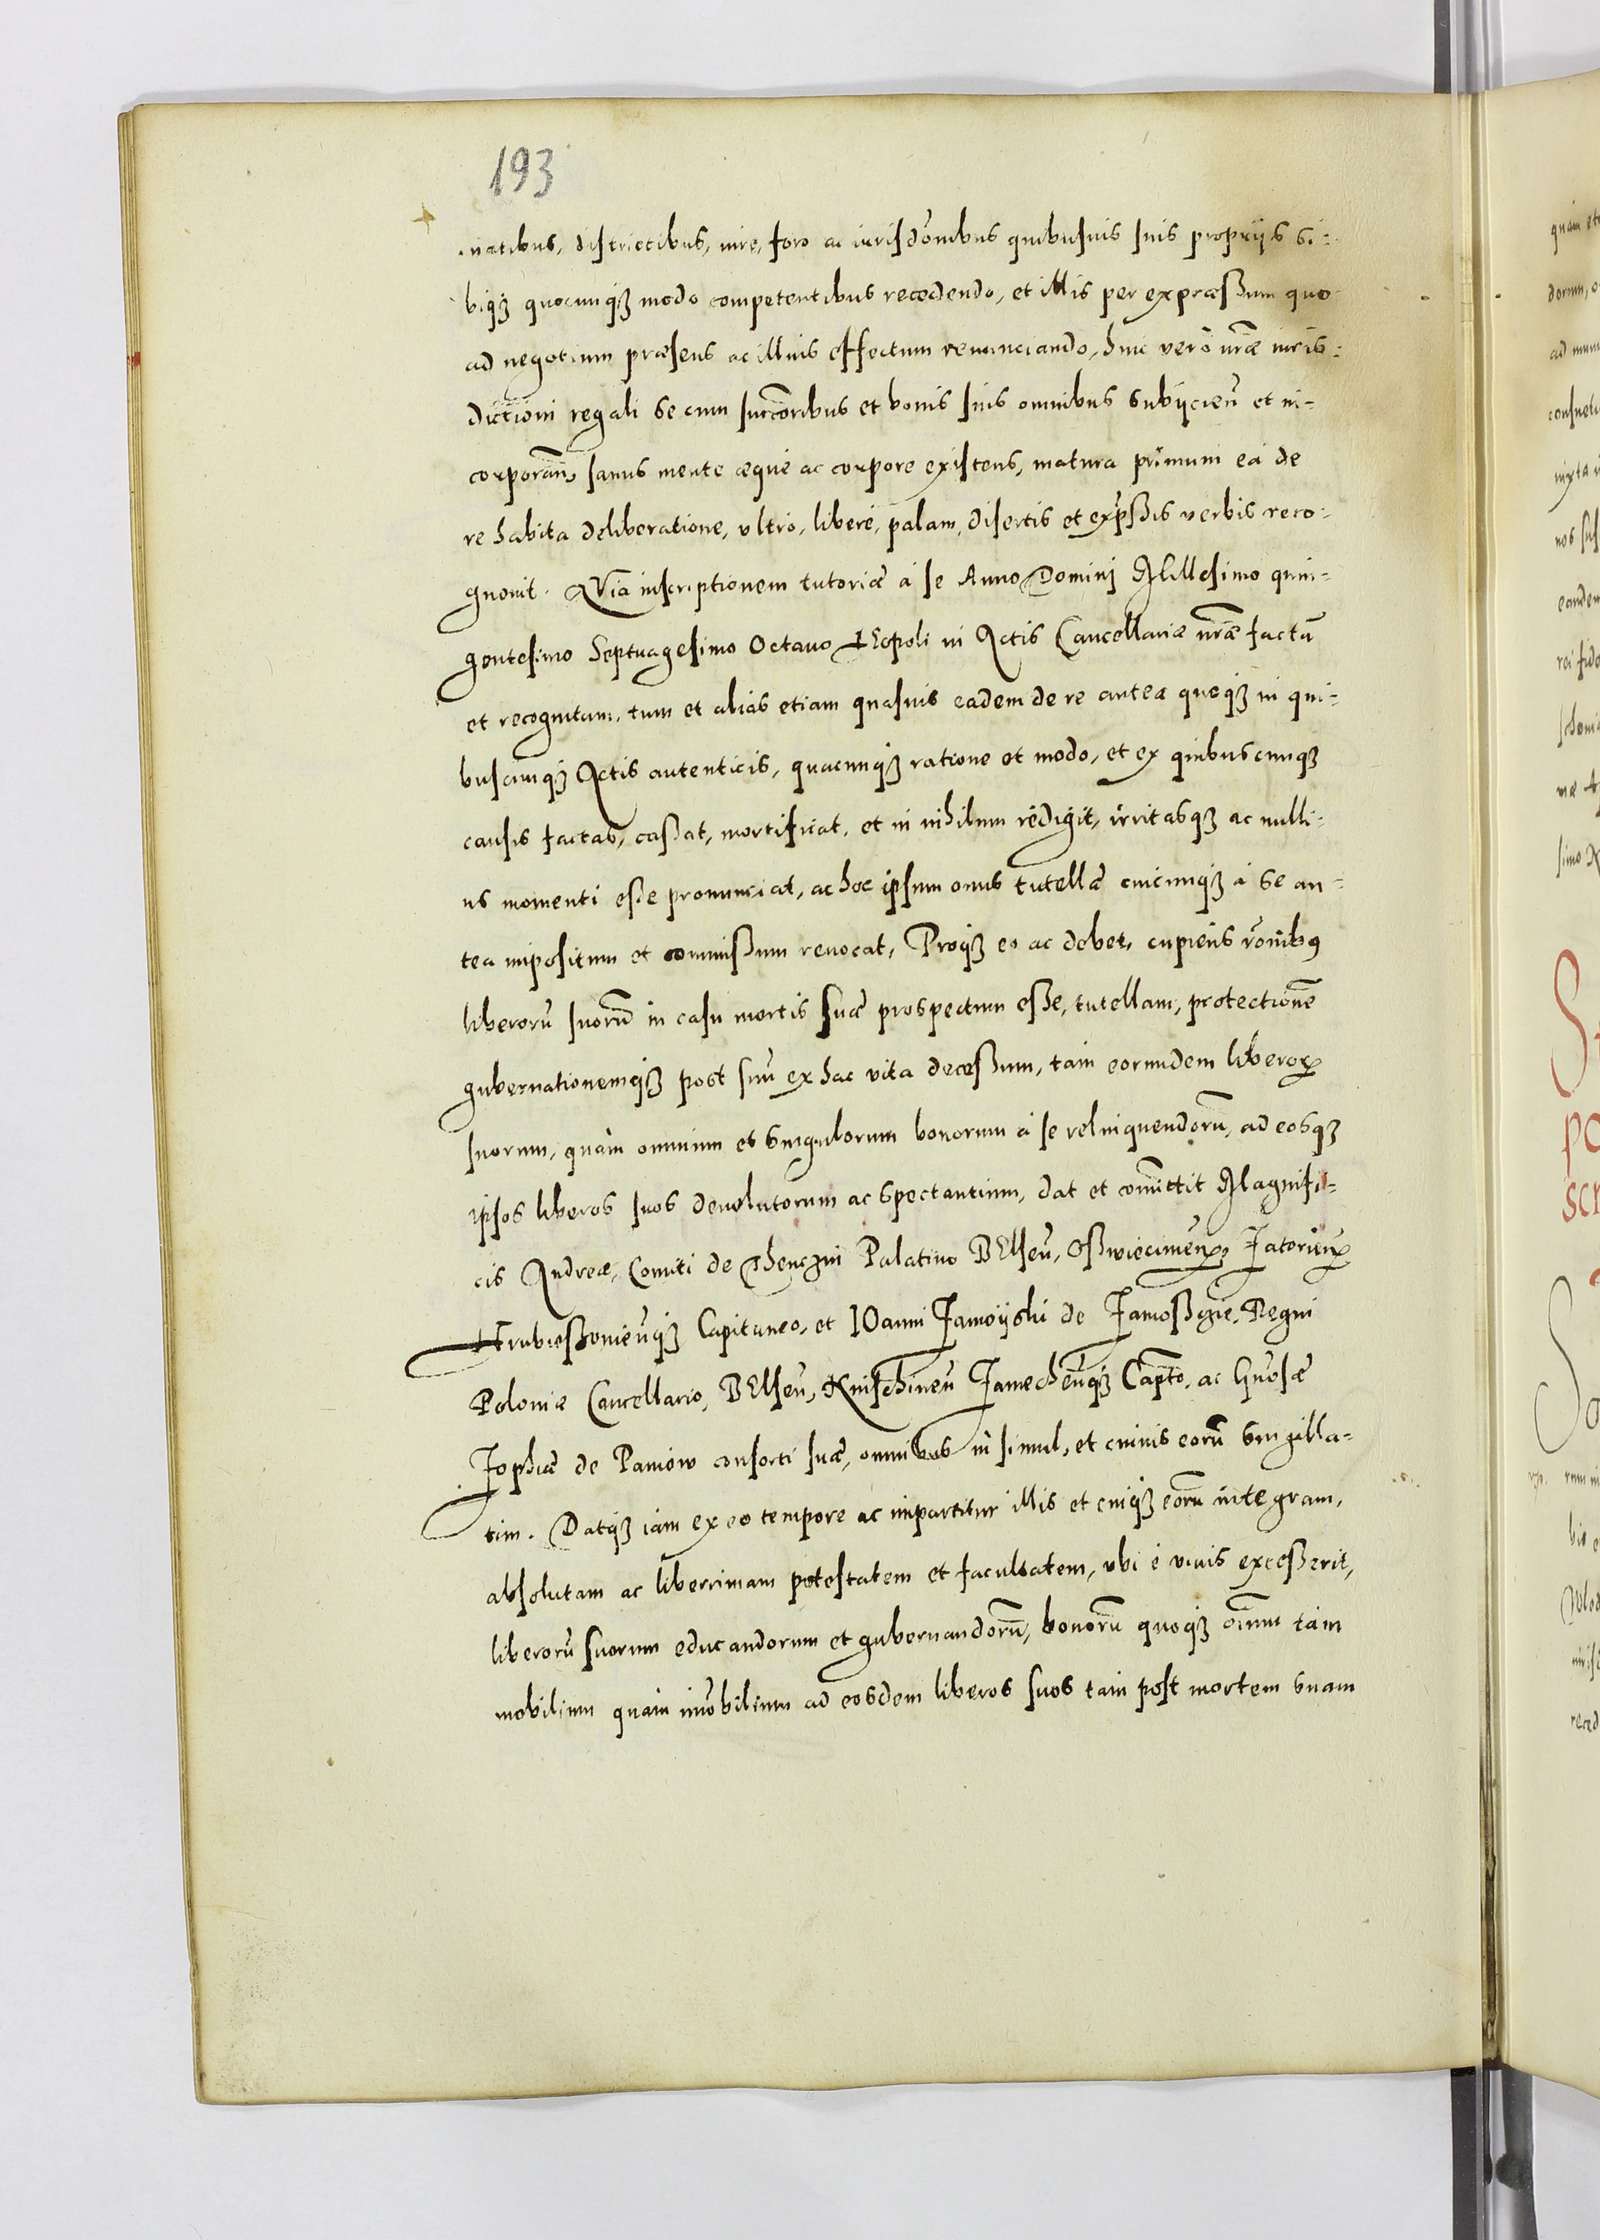 193
natibus, districtibus, iure, foro ac iurisdōnibus quibusuis suis proprijs si-
biq₃ quocunq₃ modo competentibus recedendo, et illis per expræssum quo
ad negotium præsens ac illius effectum renunciando, huic verò nr̃æ iuris-
dictioni regali se cum succōribus et bonis suis omnibus subijcien̄ et in-
corporan̄, sanus mente æque ac corpore existens, matura primum ea de
re habita deliberatione, vltro, liberè, palam, disertis et exp̄ssis verbis reco-
gnouit. QVia inscriptionem tutoriæ à se Anno Domini Millesimo quin-
gentesimo Septuagesimo Octauo LEopoli in Actis Cancellariæ nr̃æ factā
et recognitam, tum et alias etiam quasuis eadem de re antea quoq₃ in qui-
buscunq₃ Actis autenticis, quacunq₃ ratione et modo, et ex quibuscunq₃
causis factas, cassat, mortificat, et in nihilum redigit, irritasq₃ ac nulli-
us momenti esse pronunciat, ac hoc ipsum onus tutellæ cuicunq₃ à se an-
tea impositum et commissum reuocat, Proq₃ eo ac debet, cupiens rōnibus
liberorū suorū in casu mortis suæ prospectum esse, tutellam, protectionē
gubernationemq₃ post suū ex hac vita decessum, tam eorundem liberoꝝ
suorum, quàm omnium et singulorum bonorum à se relinquendorū, ad eosq₃
ipsos liberos suos deuolutorum ac spectantium, dat et com̄ittit Magnifi-
cis Andreæ, Comiti de Thenczin Palatino BElsen̄, Osswiecimen̄, Zatorien̄
Hrubiessouien̄q₃ Capitaneo, et IOanni Zamoijski de Zamosczie, Regni
Poloniæ Cancellario, BElsen̄, Knischinen̄ Zamechen̄q₃ Capt̄o, ac Gn̄osæ
Zophiæ de Paniow consorti suæ, omnibus in simul, et cuiuis eorū singilla-
tim. Datq₃ iam ex eo tempore ac impartitur illis et cuiq₃ eorū integram,
absolutam ac liberrimam potestatem et facultatem, vbi è viuis excesserit,
liberorū suorum educandorum et gubernandorū, bonorū quoq₃ oīnm tàm
mobilium quàm im̄obilium ad eosdem liberos suos tam post mortem suam